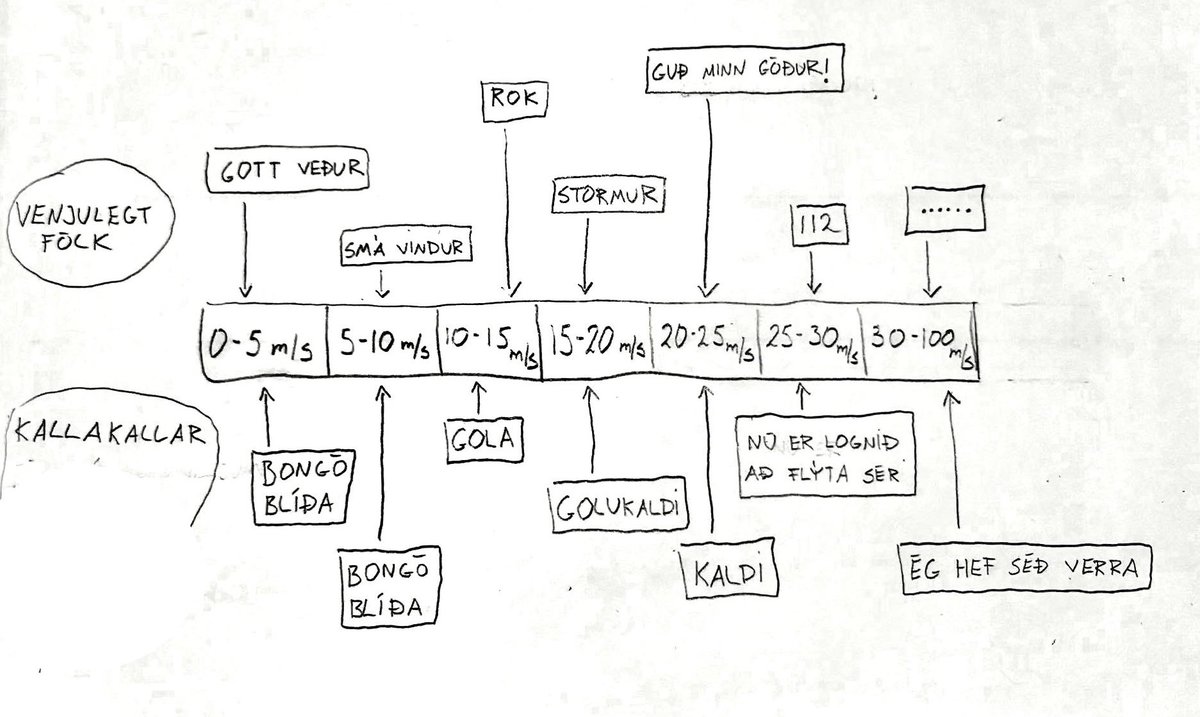 GUÐ MINN GÓÐUR!
ROK
GOTT VEÐUR
STORMUR
VENJULEGT
FÓLK
SMÁ VINDUR
112
......
0-5 m/s
5-10 m/s
10-15 m/s
15-20 m/s
20-25 m/s
25-30 m/s
30-100 m/s
KALLAKALLAR
BONGÓ
BLÍÐA
BONGÓ
BLÍÐA
GOLA
GOLUKALDI
KALDI
NÚ ER LOGNIÐ
AÐ FLÝTA SÉR
ÉG HEF SÉÐ VERRA